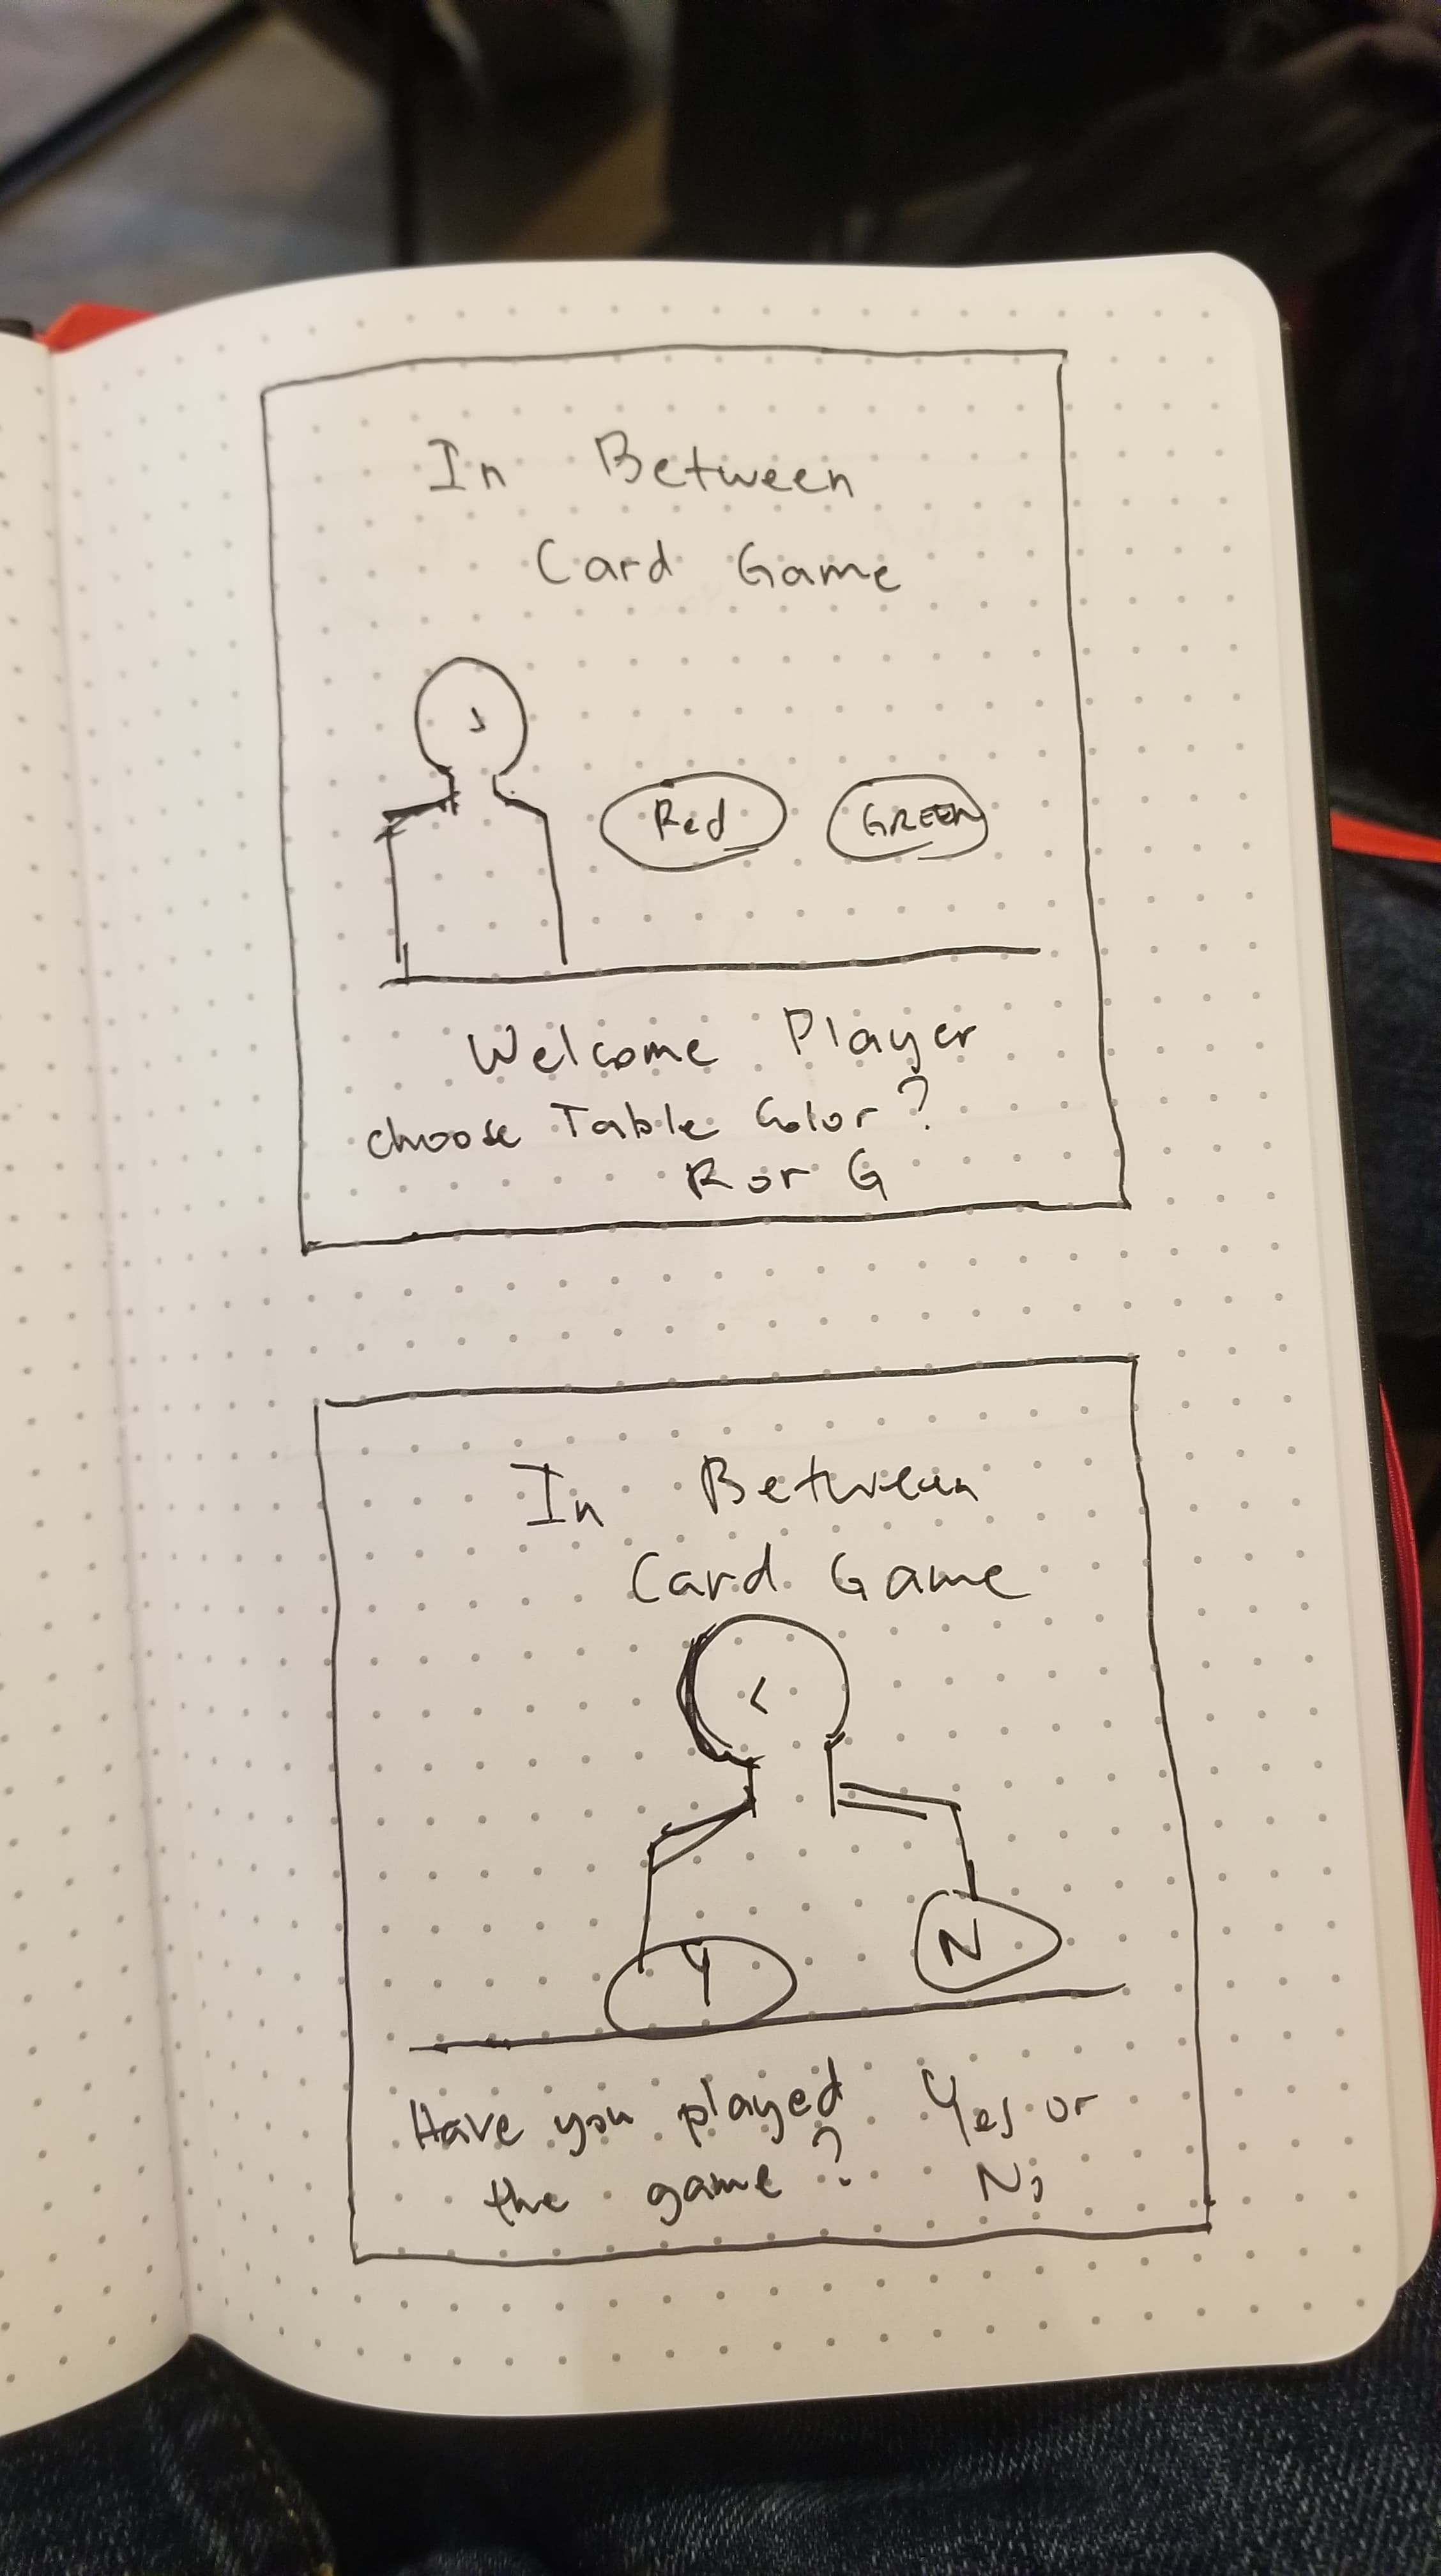 In Between
Card Game
Red GREEN
Welcome Player
choose Table Color?
R or G
In Between
Card Game
Y N
Have you played Yes or
the game? No